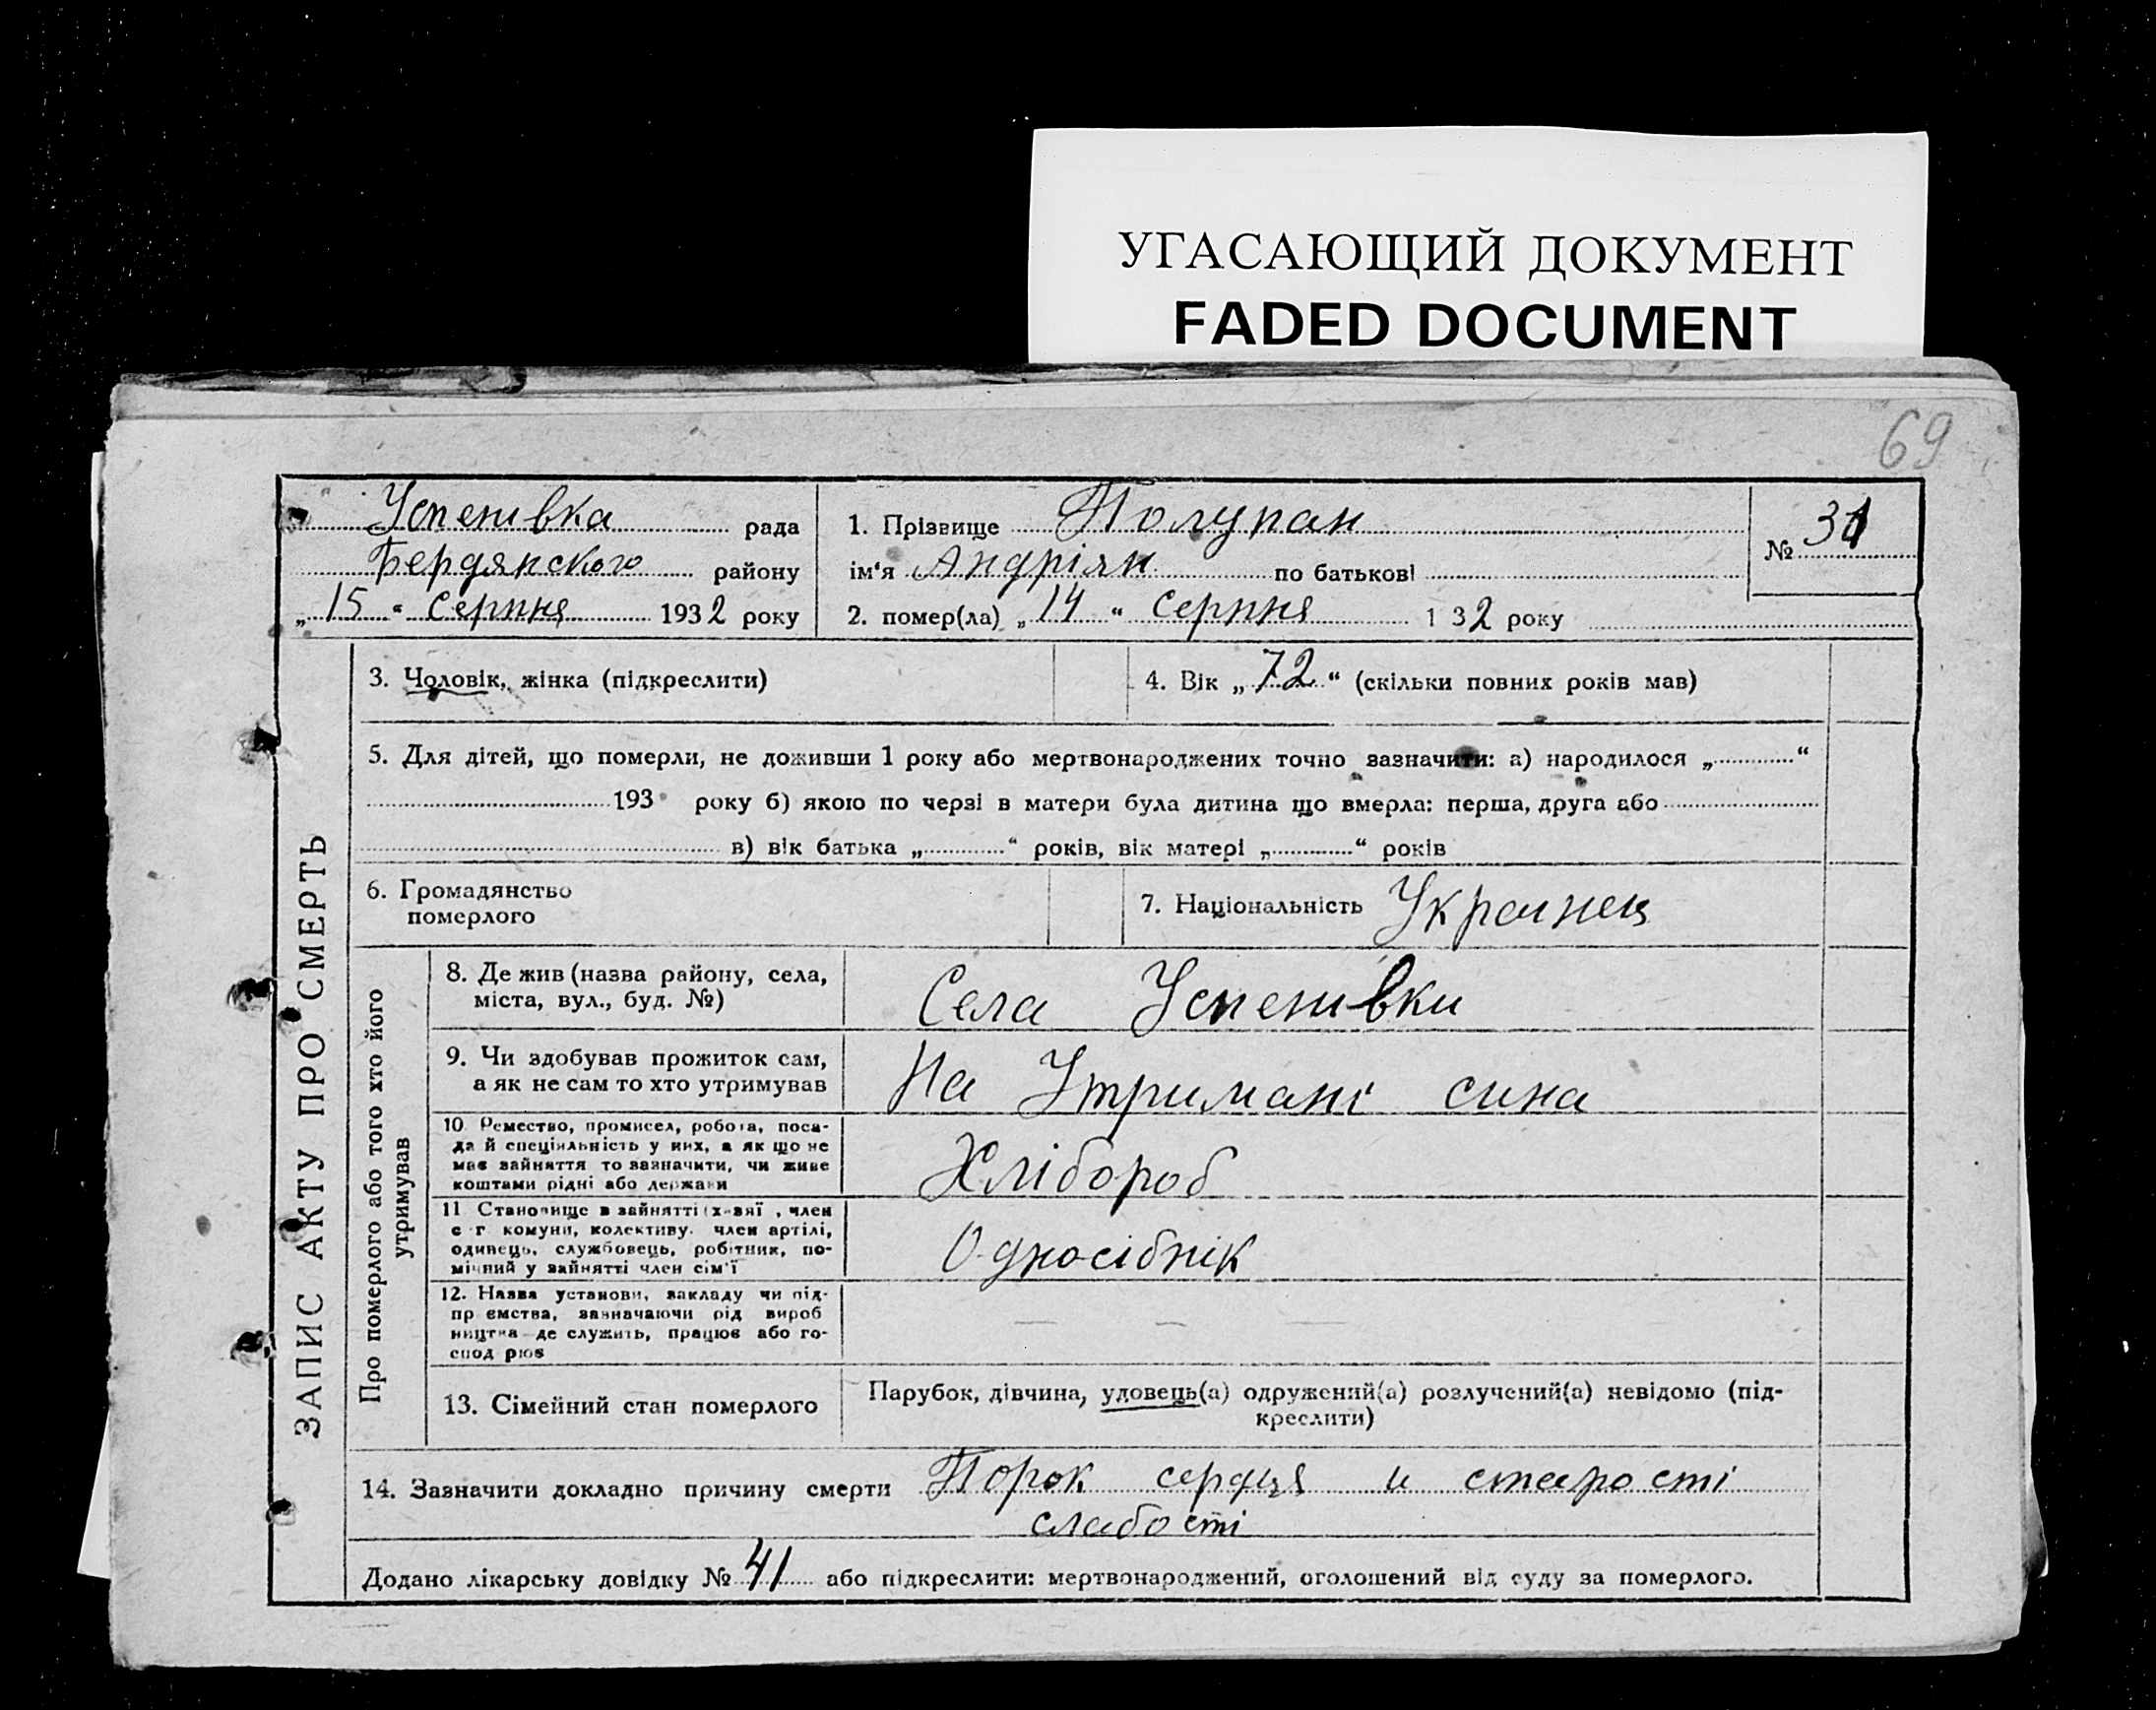 УГАСАЮЩИЙ ДОКУМЕНТ
FADED DOCUMENT
69
Успенивка рада
Бердянского району
„15“ Серпня 1932 року
1. Прізвище Полупан
ім‘я Андріян по батькові
2. помер(ла) „14“ Серпня 1 32 року
№ 31
ЗАПИС АКТУ ПРО СМЕРТЬ
3. Чоловік, жінка (підкреслити)
4. Вік „72“ (скільки повних років мав)
5. Для дітей, що померли, не доживши 1 року або мертвонароджених точно зазначити: а) народилося „ “
193 року б) якою по черзі в матери була дитина що вмерла: перша, друга або
в) вік батька „ “ років, вік матері „ “ років
6. Громадянство
померлого
7. Національність Украинец
Про померлого або того хто його
утримував
8. Де жив (назва району, села,
міста, вул., буд. №)
Села Успенивки
9. Чи здобував прожиток сам,
а як не сам то хто утримував
На Утримані сина
10 Ремество, промисел, робота, поса-
да й спеціяльність у них, а як що не
має зайняття то зазначити, чи живе
коштами рідні або держави
Хлібороб
11 Становище в зайнятті (х-вяї , член
с г комуни, колективу. член артілі,
одинець, службовець, робітник, по-
мічний у зайнятті член сім'ї
Односібнік
12. Назва установи, закладу чи під-
пр ємства, зазначаючи рід вироб
ництва де служить, працює або го-
спод рює
— — —
13. Сімейний стан померлого
Парубок, дівчина, удовець(а) одружений(а) розлучений(а) невідомо (під-
креслити)
14. Зазначити докладно причину смерти Порок сердця и старості
слабості
Додано лікарську довідку № 41 або підкреслити: мертвонароджений, оголошений від суду за померлого.